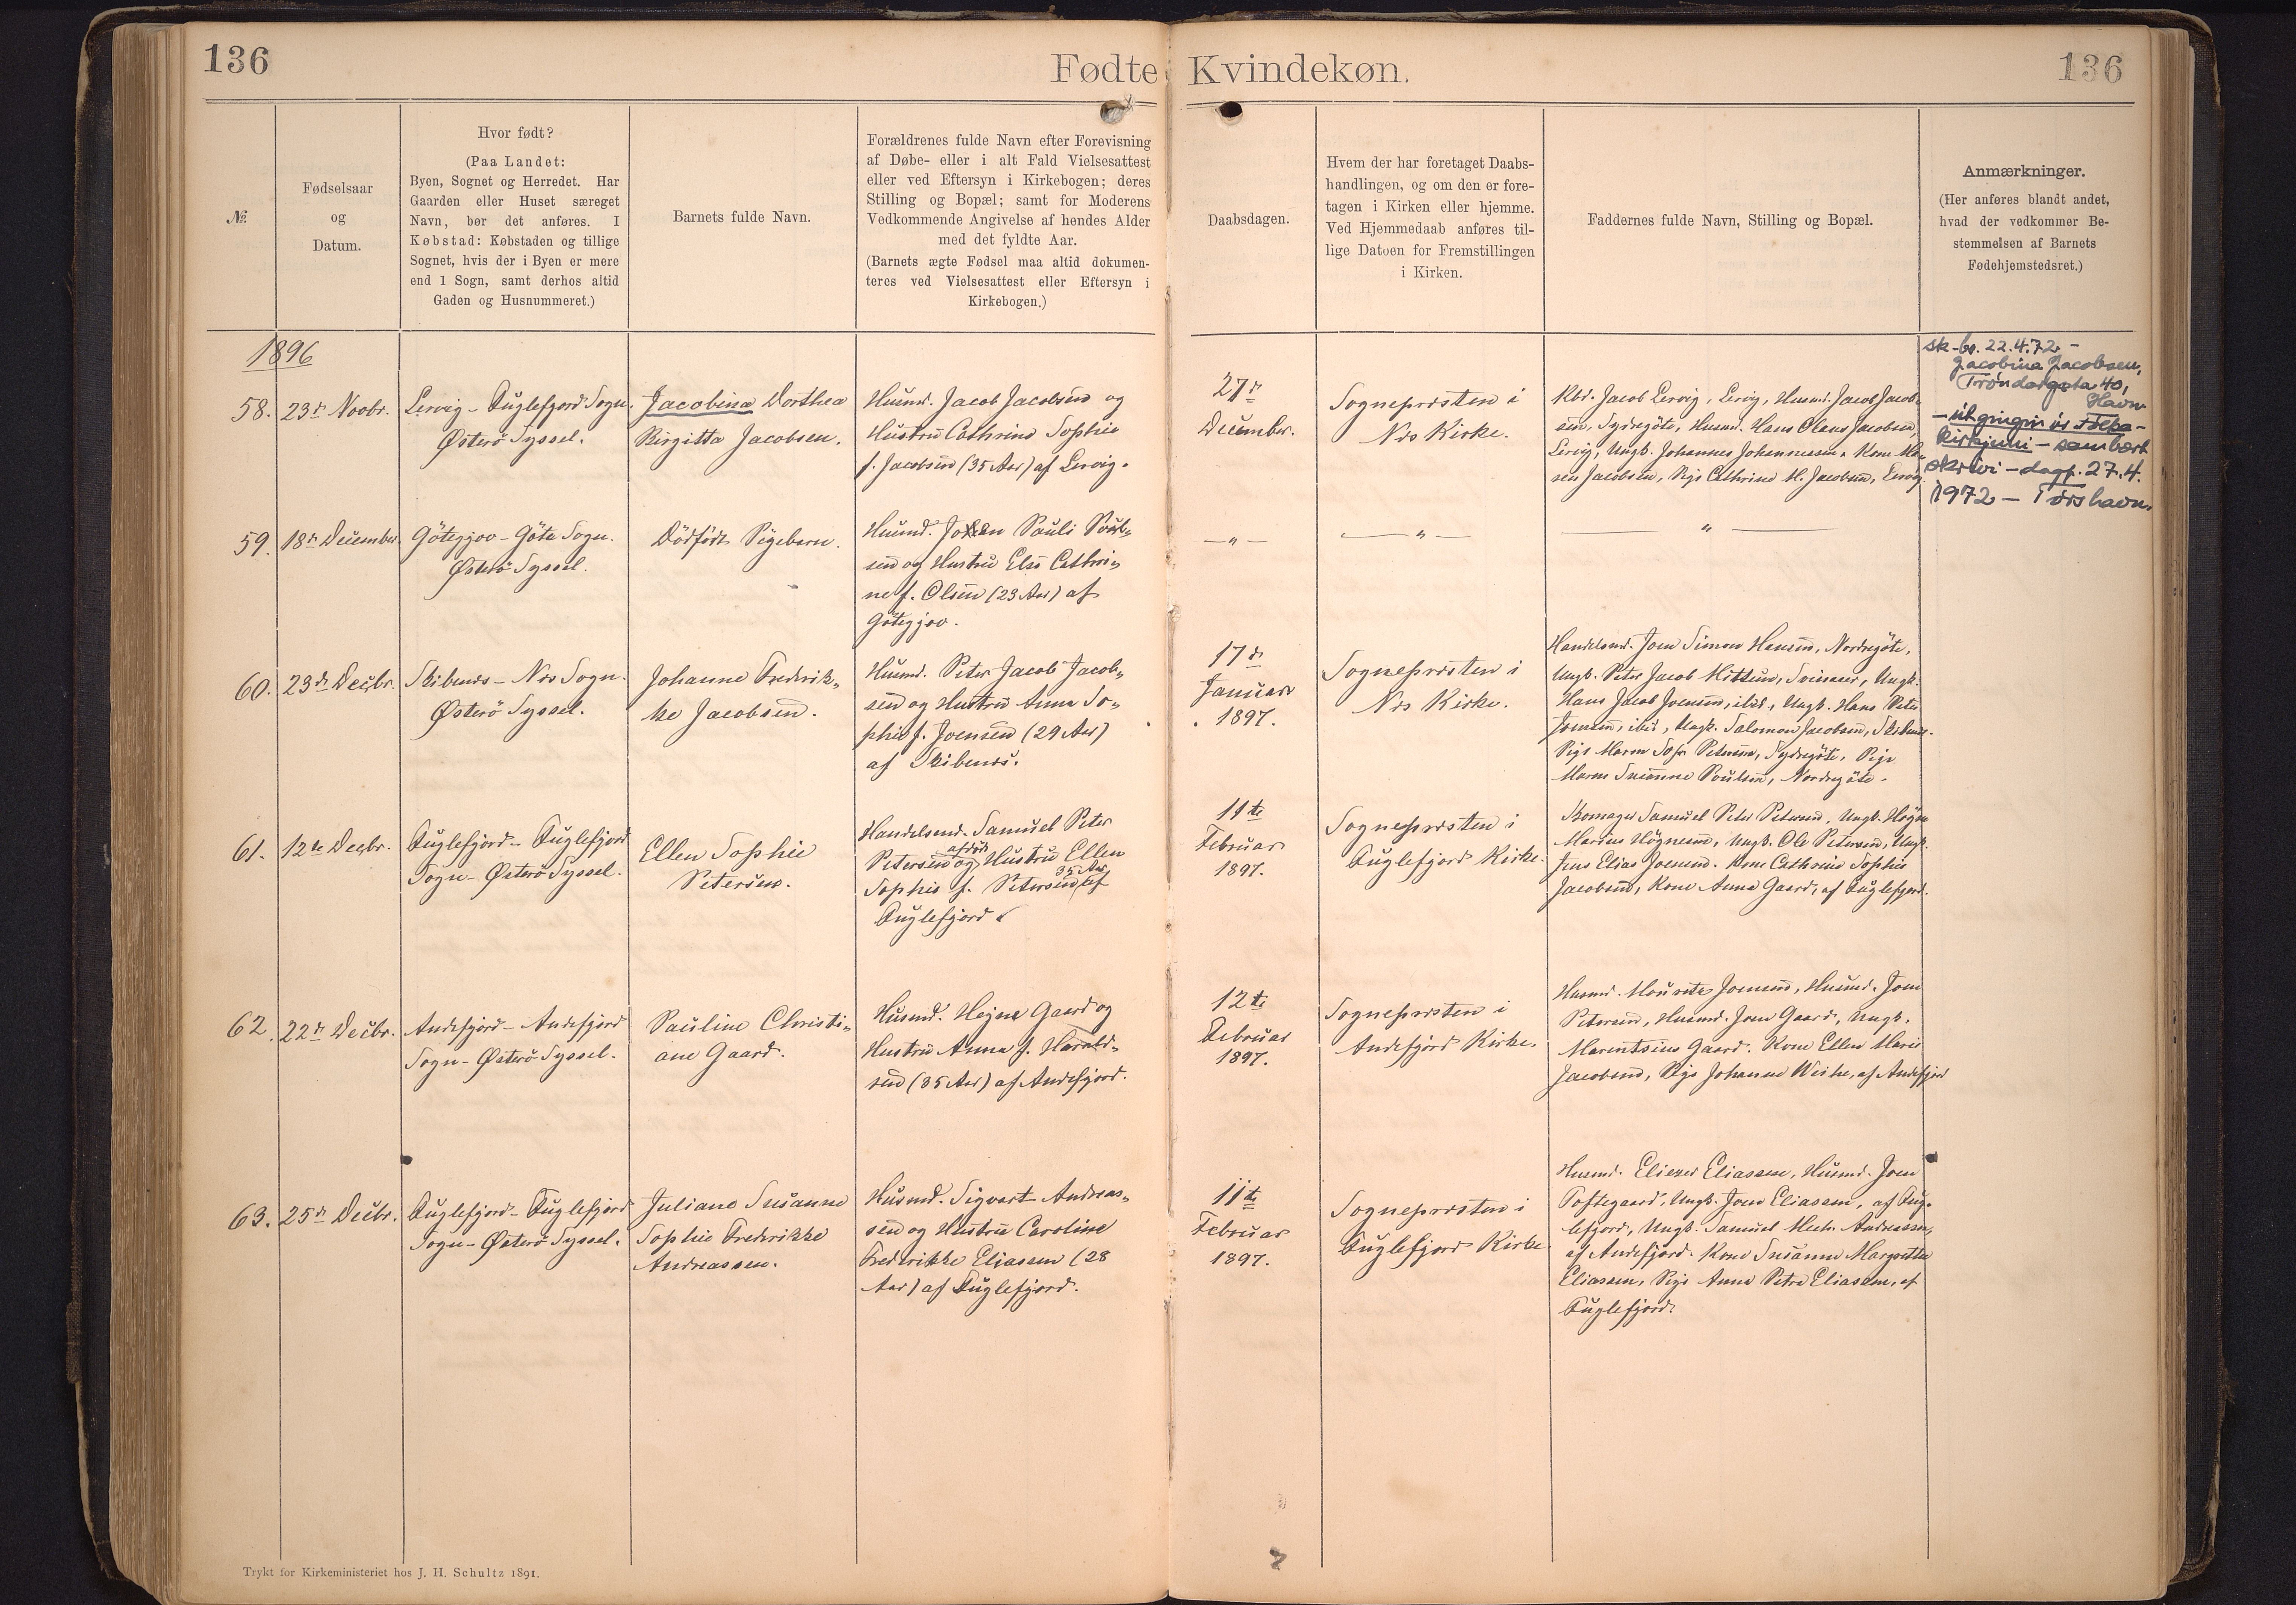 136
Fødte Kvindekøn.
136
№
Fødselsaar
og
Datum.
Hvor født?
(Paa Landet:
Byen, Sognet og Herredet. Har
Gaarden eller Huset særeget
Navn, bør det anføres. I
Købstad: Købstaden og tillige
Sognet, hvis der i Byen er mere
end 1 Sogn, samt derhos altid
Gaden og Husnummeret.)
Barnets fulde Navn.
Forældrenes fulde Navn efter Forevisning
af Døbe- eller i alt Fald Vielsesattest
eller ved Eftersyn i Kirkebogen; deres
Stilling og Bopæl; samt for Moderens
Vedkommende Angivelse af hendes Alder
med det fyldte Aar.
(Barnets ægte Fødsel maa altid dokumen-
teres ved Vielsesattest eller Eftersyn i
Kirkebogen.)
Daabsdagen.
Hvem der har foretaget Daabs-
handlingen, og om den er fore-
tagen i Kirken eller hjemme.
Ved Hjemmedaab anføres til-
lige Datoen for Fremstillingen
i Kirken.
Faddernes fulde Navn, Stilling og Bopæl.
Anmærkninger.
(Her anføres blandt andet,
hvad der vedkommer Be-
stemmelsen af Barnets
Fødehjemstedsret.)
1896
58.
23d Novbr.
Lervig - Fuglefjord Sogn.
Østerö Syssel.
Jacobina Dorthea
Birgitta Jacobsen.
Husmd. Jacob Jacobsen og
Hustru Cathrine Sophie
f. Jacobsen (35 Aar) af Lervig.
27d
December.
Sognepræsten i
Næs Kirke.
Kbd. Jacob Lervig, Lervig, Husmd. Jacob Jacob-
sen, Sydregöte, Husmd. Hans Claus Jacobsen,
Lervig, Ungk. Johannes Johannessen, Kone Ma-
ren Jacobsen, Pige Cathrine M. Jacobsen, Lervig.
sk-br. 22.4.72 -
Jacobina Jacobsen,
Tróndargøta 40,
Havn
- útgingin úr Fólka-
kirkjuni - sambært
skrivi - dagf. 27.4.
1972 - Tórshavn.
59.
18d December
Götegjov - Göte Sogn.
Österö Syssel.
Dödfödt Pigebarn.
Husmd. Joen Pauli Poul-
sen og Hustru Else Cathri-
ne f. Olsen (23 Aar) af
Götegjov.
- " -
- " -
- " -
60.
23d Decbr.
Skibenæs - Næs Sogn.
Østerö Syssel.
Johanne Frederik-
ke Jacobsen.
Husmd. Peter Jacob Jacob-
sen og Hustru Anna So-
phie f. Joensen (29 Aar)
af Skibenæs.
17d
Januar
1897.
Sognepræsten i
Næs Kirke.
Handelsmd. Joen Simon Hansen, Nordregöte,
Ungk. Peter Jacob
Hans Jacob Joensen, ibid., Ungk. Hans Peter
Joensen, ibid, Ungk. Salomon Jacobsen, Skibenæs.
Pige Maren Sofie Petersen, Sydregöte, Pige
Maren Susanne Poulsen, Nordregöte.
61.
12te Decbr.
Fuglefjord - Fuglefjord
Sogn - Østerö Syssel.
Ellen Sophie
Petersen.
Handelsmd. Samuel Peter
Petersen og afdøde Hustru Ellen
Sophie f. Petersen 35 Aar af
Fuglefjord.
11te
Februar
1897.
Sognepræsten i
Fuglefjord Kirke.
Skomager Samuel Peter Petersen, Ungk. Högne
Marius Högnesen, Ungk. Ole Petersen, Ungk.
Jens Elias Joensen. Kone Cathrine Sophie
Jacobsen, Kone Anna Gaard, af Fuglefjord.
62.
22d Decbr.
Andefjord - Andefjord
Sogn - Østerö Syssel.
Pauline Christi-
ane Gaard.
Husmd. Hojne Gaard og
Hustru Anna f. Harald-
sen (35 Aar) af Andefjord.
12te
Februar
1897.
Sognepræsten i
Andefjord Kirke.
Husmd. Mourits Joensen, Husmd. Joen
Petersen, Husmd. Joen Gaard, Ungk.
Marentsius Gaard. Kone Ellen Marie
Jacobsen, Pige Johanne Weihe, af Andefjord
63.
25d Decbr.
Fuglefjord - Fuglefjord
Sogn - Østerö Syssel.
Juliane Susanne
Sophie Frederikke
Andreassen.
Husmd. Sigvart Andreas-
sen og Hustru Caroline
Frederikke Eliasen (28
Aar) af Fuglefjord.
11te
Februar
1897.
Sognepræsten i
Fuglefjord Kirke
Husmd. Eliezer Eliassen, Husmd. Joen
Toftegaard, Ungk. Joen Eliassen, af Fug-
lefjord, Ungk. Samuel Mich. Andreassen,
af Andefjord. Kone Susanne Margrethe
Eliassen, Pige Anna Petra Eliassen, af
Fuglefjord.
Trykt for Kirkeministeriet hos J. H. Schultz 1891.